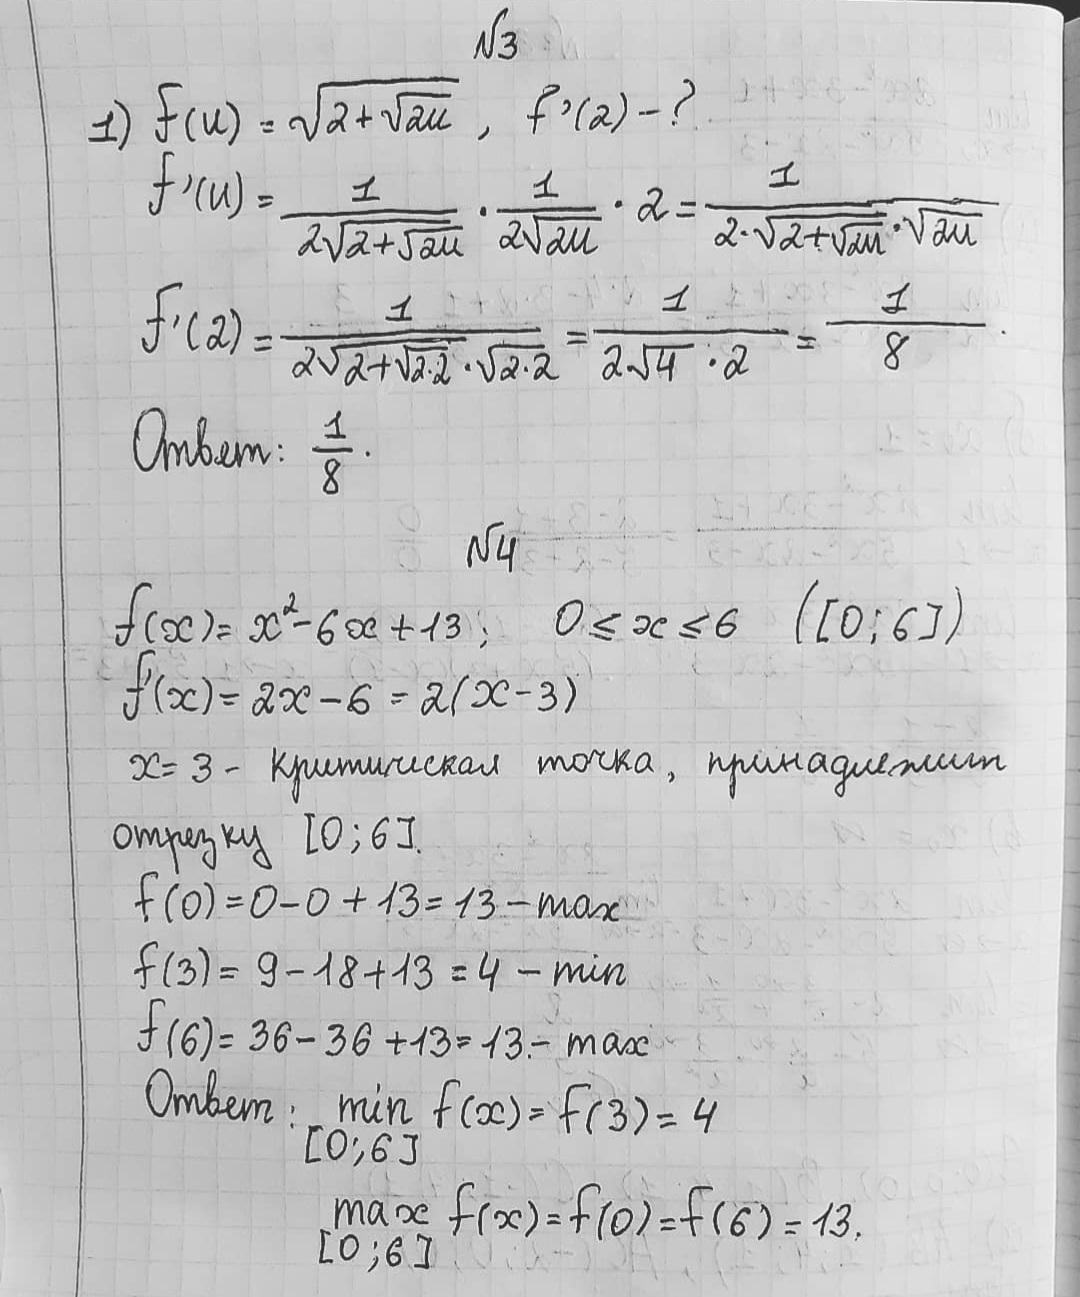 №3
1) f(u) = √(2+√(2u)) , f'(2) - ?
f'(u) = 1/(2√(2+√(2u))) · 1/(2√(2u)) · 2 = 1/(2·√(2+√(2u))·√(2u))
f'(2) = 1/(2√(2+√(2·2))·√(2·2)) = 1/(2√4·2) = 1/8.
Ответ: 1/8.
№4
f(x) = x²-6x+13; 0≤x≤6 ([0;6])
f'(x) = 2x-6 = 2(x-3)
x=3 - критическая точка, принадлежит
отрезку [0;6].
f(0)=0-0+13=13-max
f(3)=9-18+13=4-min
f(6)=36-36+13=13.-max
Ответ: min f(x)=f(3)=4
[0;6]
max f(x)=f(0)=f(6)=13.
[0;6]